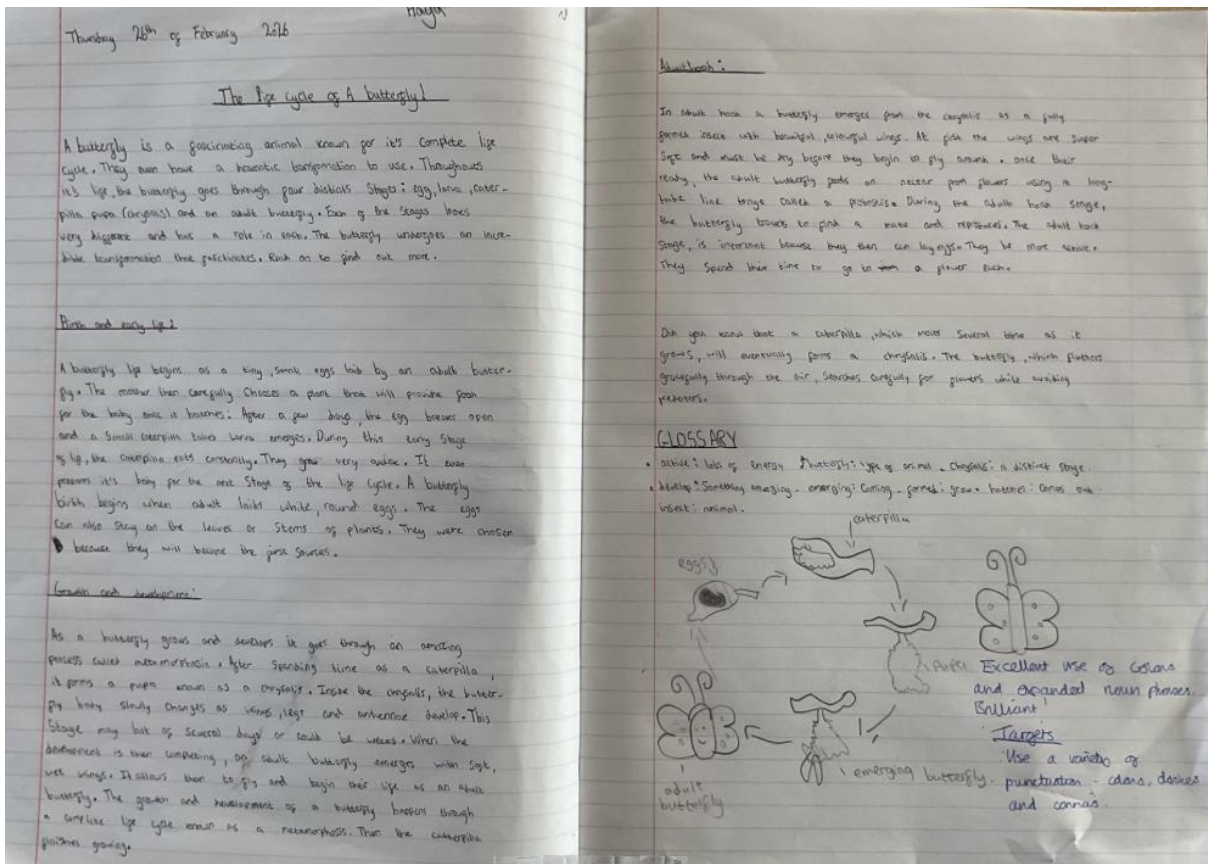 Haya
Thursday 26th of February 2026
The life cycle of A butterfly!
A butterfly is a fascinating animal known for it's complete life
cycle. They even have a transformation to use. Throughout
it's life, the butterfly goes through four Stages: egg, larva, cater-
pilla pupa (chrysalis) and an adult butterfly. Each of the Stages looks
very and has a role in each. The butterfly undergoes an incre-
dible transformation that fascinates. on to find out more.
Birth and early life:
A butterfly life begins as a tiny, small eggs laid by an adult butter-
fly. The mother then carefully Chooses a plant that will provide food
for the baby once it hatches. After a few days, the egg breaks open
and a Small caterpilla called emerges. During this early Stage
of life, the caterpilla eats constantly. They grow very quick. It even
prepares it's body for the next Stage of the life cycle. A butterfly
birth begins when adult white, round eggs. The eggs
can also stay on the leaves or Stems of plants. They were chosen
because they will become the sources.
Growth and development:
As a butterfly grows and develops it goes through an amazing
process called metamorphosis. After Spending time as a caterpilla,
it forms a pupa known as a chrysalis. Inside the chrysalis, the butter-
fly body slowly changes as wings, legs and antennae develop. This
Stage may of several days or could be weeks. When the
is then completing, an adult butterfly emerges with Soft,
wet wings. It allows them to fly and begin their life as an adult
butterfly. The growth and development of a butterfly happens through
a complete life cycle known as a metamorphosis. Then the
finishes growing.
Adulthood:
In adult hood a butterfly emerges from the chrysalis as a fully
formed insect with beautiful, colourful wings. At the wings are super
Soft and must be dry before they begin to fly around. once their
ready, the adult butterfly feeds on nectar from flowers using a long-
tube line called a proboscis. During the adult hood Stage,
the butterfly to find a mate and reproduces. The adult hood
Stage, is important because they then can lay eggs. They be more active.
They Spend their time to go to a flower each.
Did you know that a caterpilla, which Several time as it
grows, will eventually forms a chrysalis. The butterfly, which flutters
gracefully through the air, Searches carefully for flowers while avoiding
predators.
GLOSSARY
• active: lots of energy butterfly: type of animal. Chrysalis: a distinct stage.
• develop: Something emerging. emerging: Coming. formed: grow. hatches: Comes out.
insect: animal.
caterpilla
eggs
pupa
emerging butterfly.
adult
butterfly
Excellent use of colons
and expanded noun phrases.
Brilliant!
Targets
Use a variety of
punctuation - colons, dashes
and commas.